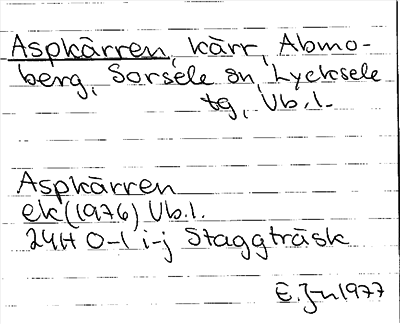 Aspkärren, kärr, Abmo-
berg, Sorsele sn, Lycksele
tg, Vb.l.
Aspkärren
ek (1976) Vb.l.
24H 0-1 i-j Staggträsk
E. Jn 1977